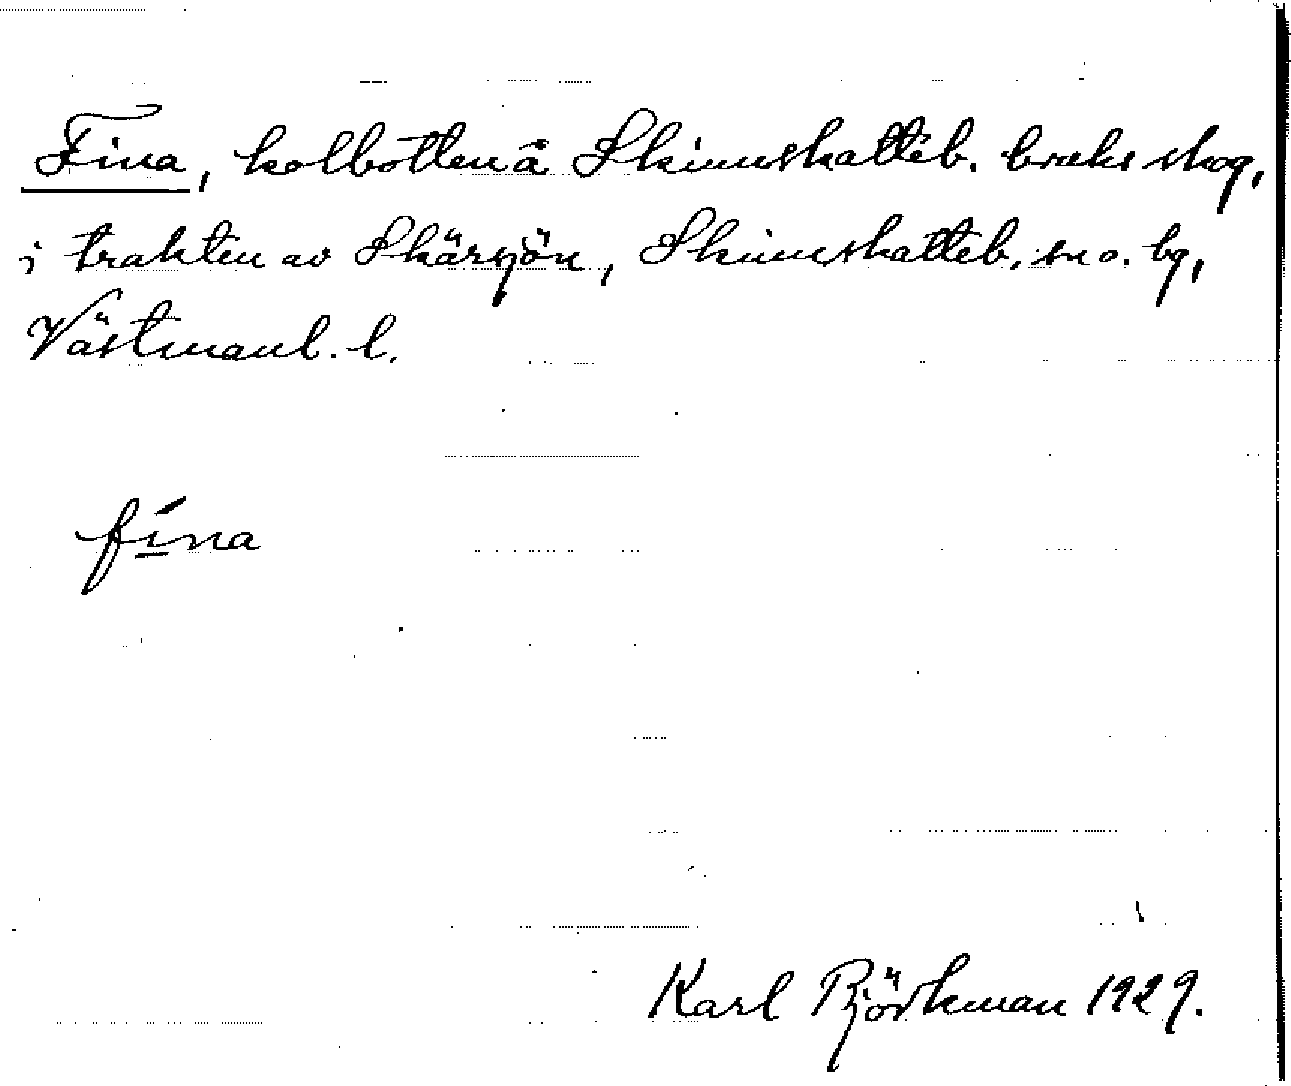 Fina, kolbotten å Skinnskatteb. bruks skog,
i trakten av Skärsjön, Skinnskatteb. sn o. bg,
Västmanl. l.
fína
Karl Björkman 1929.